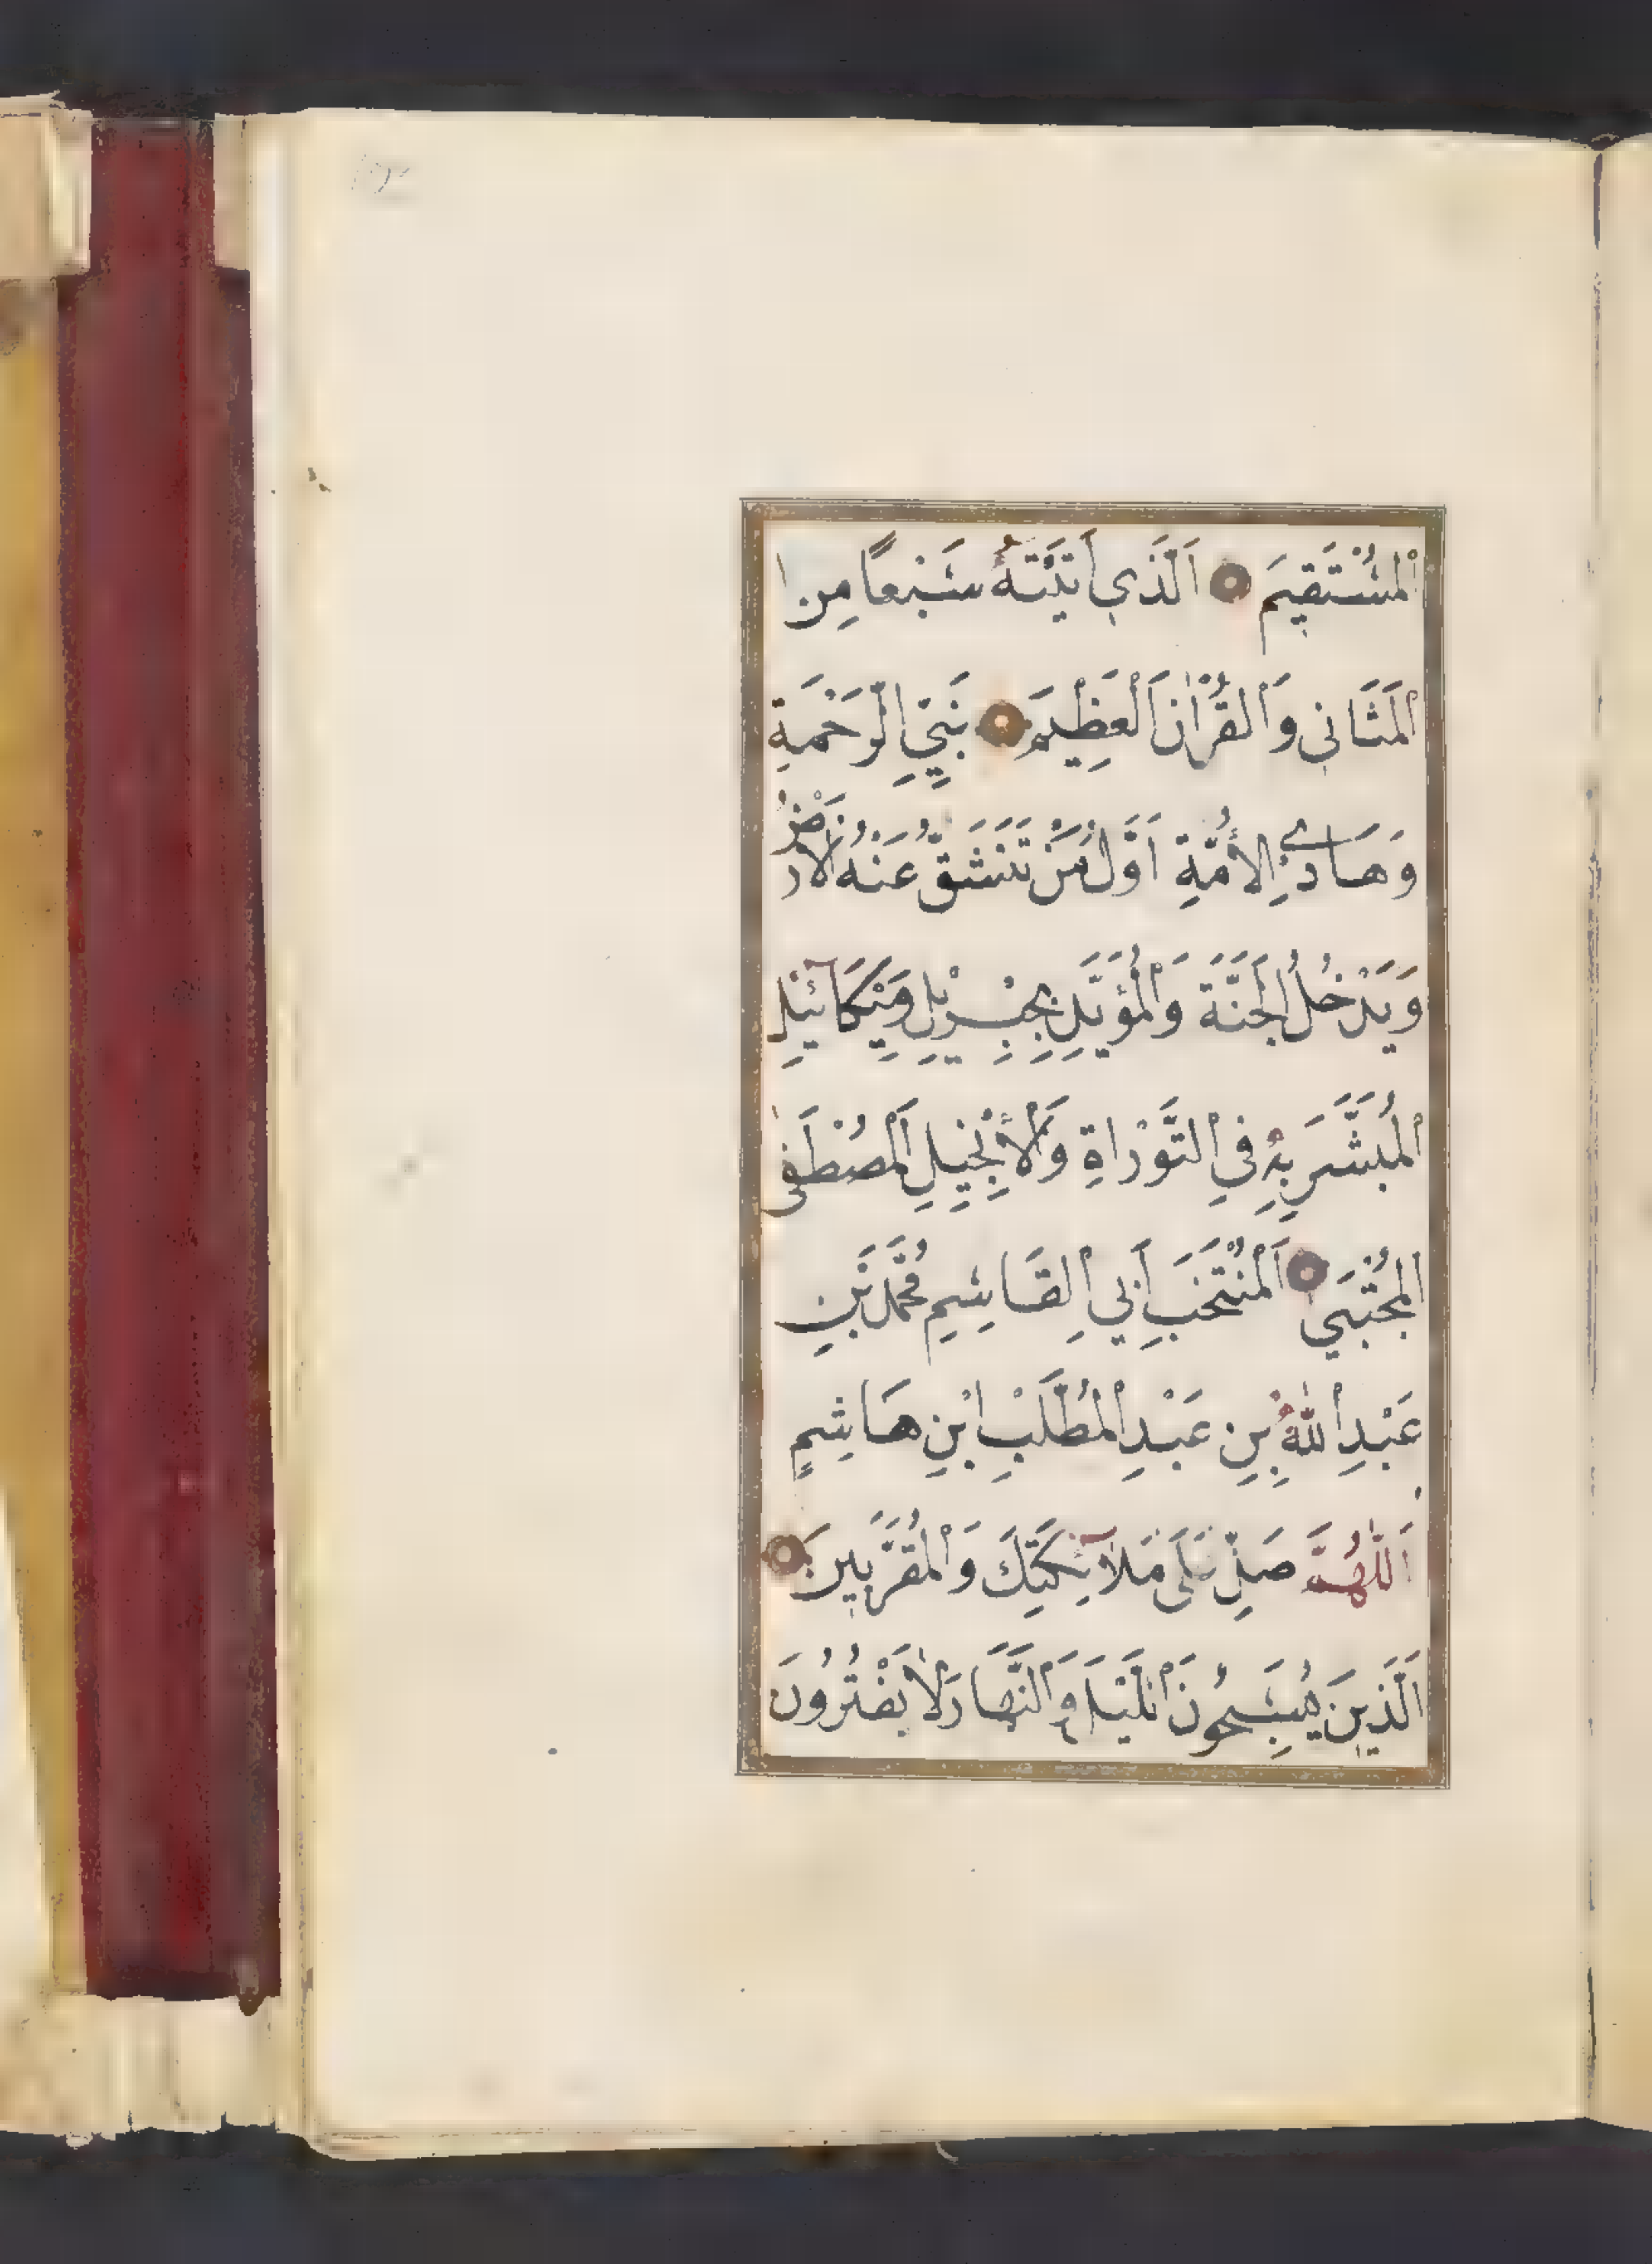 الْمُسْتَقِيمَ اَلَّذِي اَتَيْتَهُ سَبْعًا مِنَ
الْمَثَانِي وَالْقُرْاٰنَ الْعَظِيمَ نَبِيِّ الرَّحْمَةِ
وَهَادِي الْأُمَّةِ اَوَّلُ مَنْ تَنْشَقُّ عَنْهُ الْاَرْضُ
وَيَدْخُلُ الْجَنَّةَ وَالْمُؤَيَّدِ بِجِبْرِيلِ وَمِيكَائِيلِ
الْمُبَشَّرِ بِهِ فِي التَّوْرَاةِ وَالْأِنْجِيلِ الْمُصْطَفٰى
الْمُجْتَبَى اَلْمُنْتَخَبِ اَبِي الْقَاسِمِ مُحَمَّدِ بْنِ
عَبْدِ اللّٰهِ بْنِ عَبْدِ الْمُطَّلِبِ ابْنِ هَاشِمٍ
اَللّٰهُمَّ صَلِّ عَلَى مَلَآئِكَتِكَ وَالْمُقَرَّبِينَ
اَلَّذِينَ يُسَبِّحُونَ الَّيْلَ وَالنَّهَارَ لَا يَفْتُرُونَ